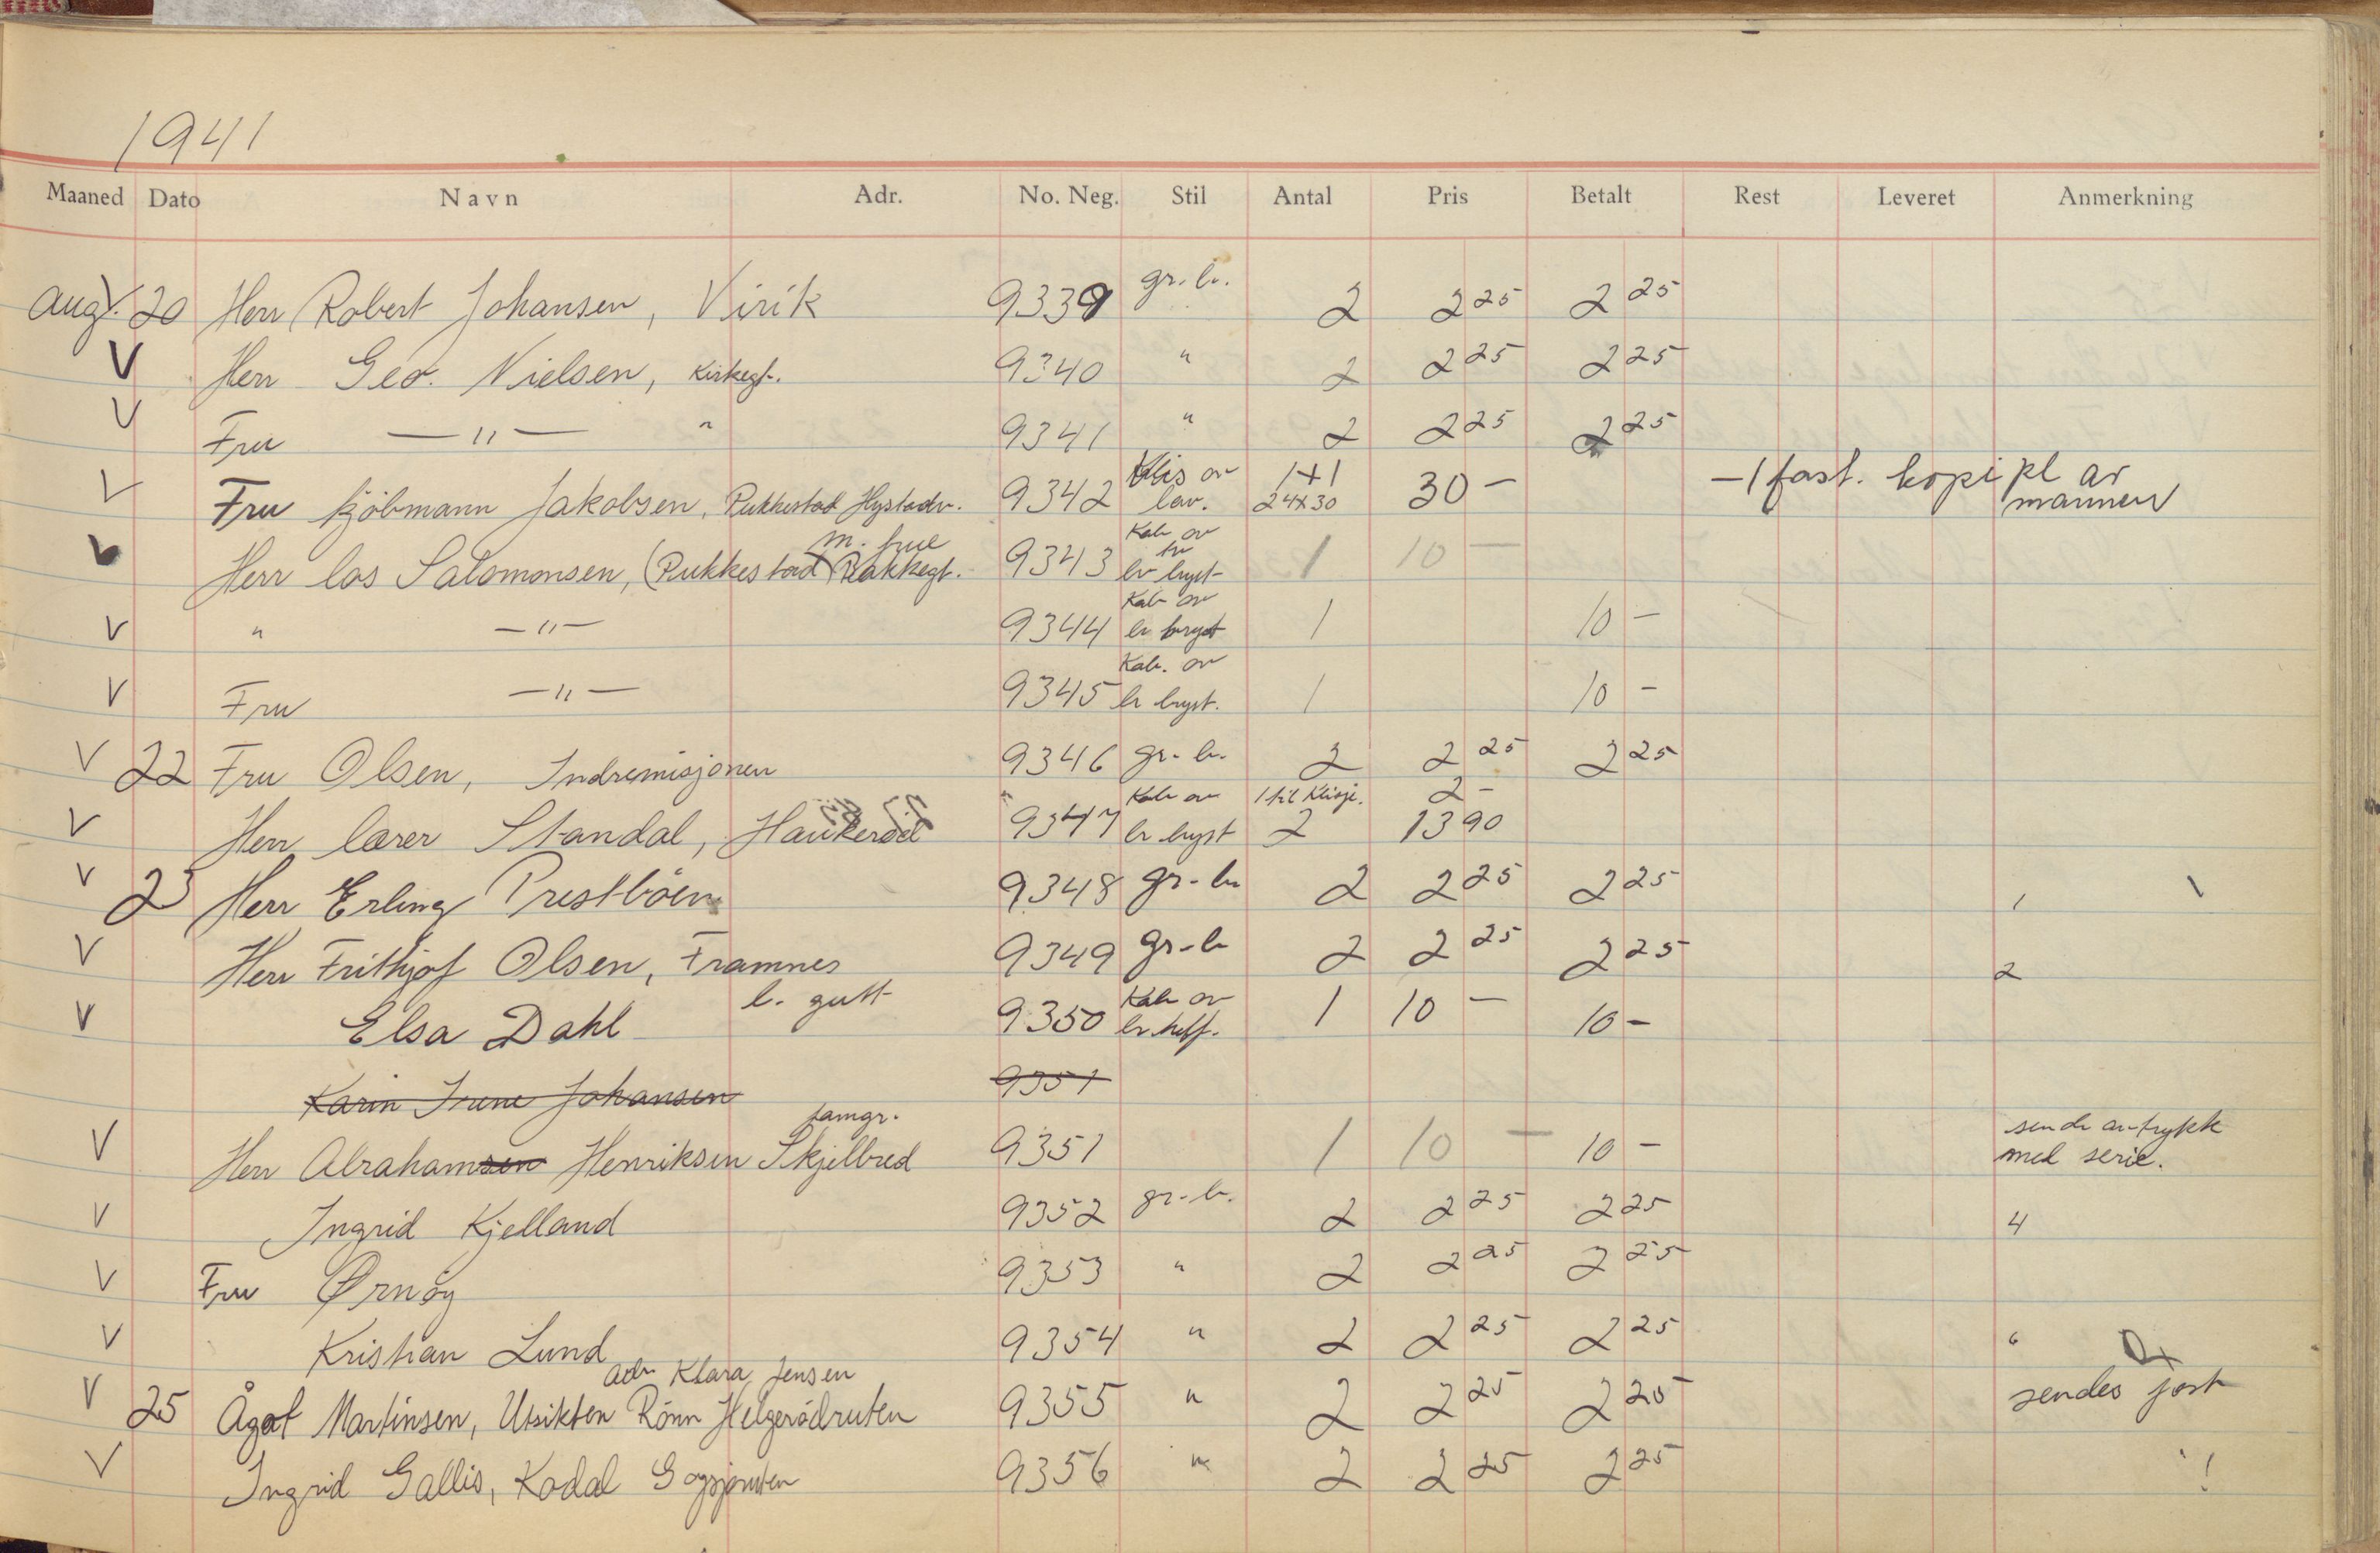 1941
Maaned Dato Navn Adr. No. Neg. Stil Antal Pris Betalt Rest Leveret Anmerkning
Aug. 20 Herr Robert Johansen, Virik 9339 gr. br. 2 2 25 2 25
V Herr Geo. Nielsen, Kirkegt. 9340 " 2 2 25 2 25
V Fru —"— " 9341 " 2 2 25 2 25
V Fru kjöbmann Jakobsen, Pukkestad Hystadv. 9342 lav. 1+1 24x30 30 - - 1 fast. kopi pl av mannen
m. frue
V Herr los Salomonsen, (Pukkestad) Bakkegt. 9343 Kab av br bryst 1 10 —
V " —"— 9344 Kab av br bryst 1 10 -
V Fru —"— 9345 Kab. av br bryst. 1 10 -
V 22 Fru Olsen, Indremisjonen 9346 gr. br. 2 2 25 2 25
1 til Klisje. 2 -
V Herr lærer Standal, Haukerød 9347 Kab av br bryst 2 13 90
V 23 Herr Erling Prestböen 9348 gr-br 2 2 25 2 25 1
V Herr Frithjof Olsen, Framnes 9349 gr-br 2 2 25 2 25 2
V Elsa Dahl l. gutt 9350 Kab av br 1 10 — 10 -
Karin Irene Johansen 9351
famgr.
V Herr Abrahamsen Henriksen Skjellbred 9351 1 10 — 10 - sende avtrykk med serie.
V Ingrid Kjelland 9352 gr-br. 2 2 25 2 25 4
V Fru Ørnöy 9353 " 2 2 25 2 25
V Kristian Lund 9354 " 2 2 25 2 25 6
adr Klara Jensen
V 25 Ågot Martinsen, Utsikten Rönn Helgerödruten 9355 " 2 2 25 2 25 sendes post
V Ingrid Gallis, Kodal Gogsjøruten 9356 " 2 2 25 2 25 !